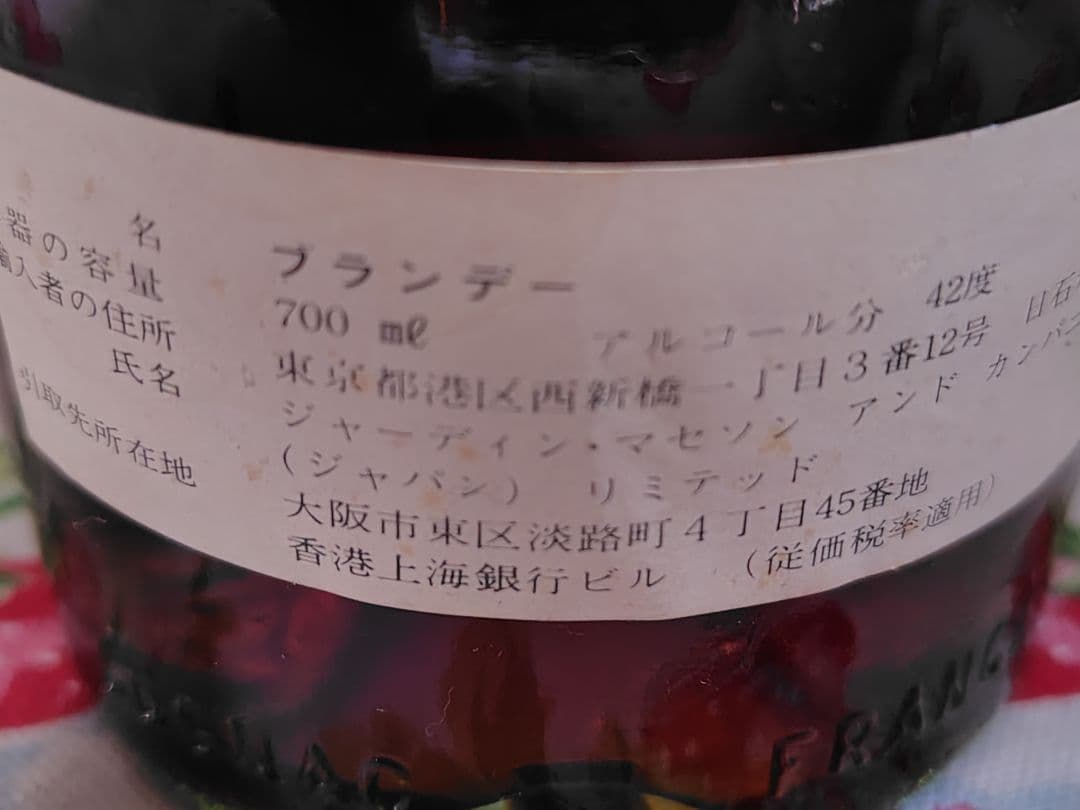 名 ブランデー
器の容量 700 ml アルコール分 42度
輸入者の住所 東京都港区西新橋一丁目3番12号 日石
氏名 ジャーディン・マセソン アンド カンパニ
(ジャパン) リミテッド
引取先所在地 大阪市東区淡路町4丁目45番地
香港上海銀行ビル (従価税率適用)
FRANC